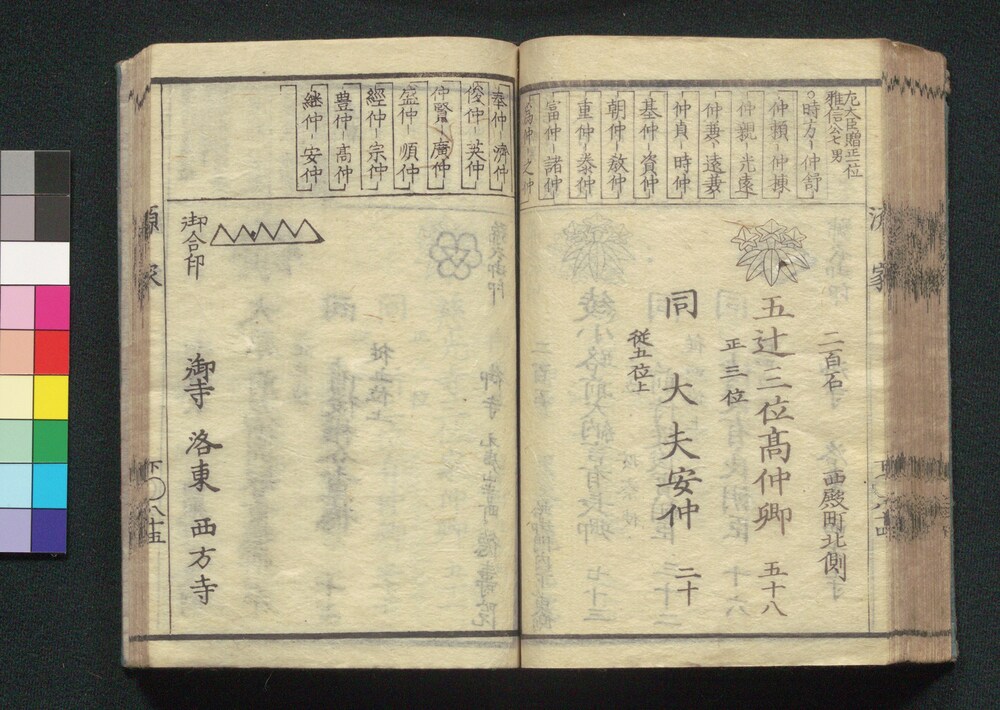 左大臣贈正一位
雅信公七男
時方 仲舒
仲頼 仲棟
仲親 光遠
仲兼 遠兼
仲貞 時仲
基仲 資仲
朝仲 敦仲
重仲 泰仲
富仲 諸仲
之仲
奉仲 濟仲
俊仲 英仲
仲賢 廣仲
盛仲 順仲
經仲 宗仲
豊仲 高仲
継仲 安仲
二百石
西殿町北側
五辻三位高仲卿 五十八
正三位
同 大夫安仲 二十
従五位上
御合印
御寺 洛東 西方寺
源家
下〇八十五